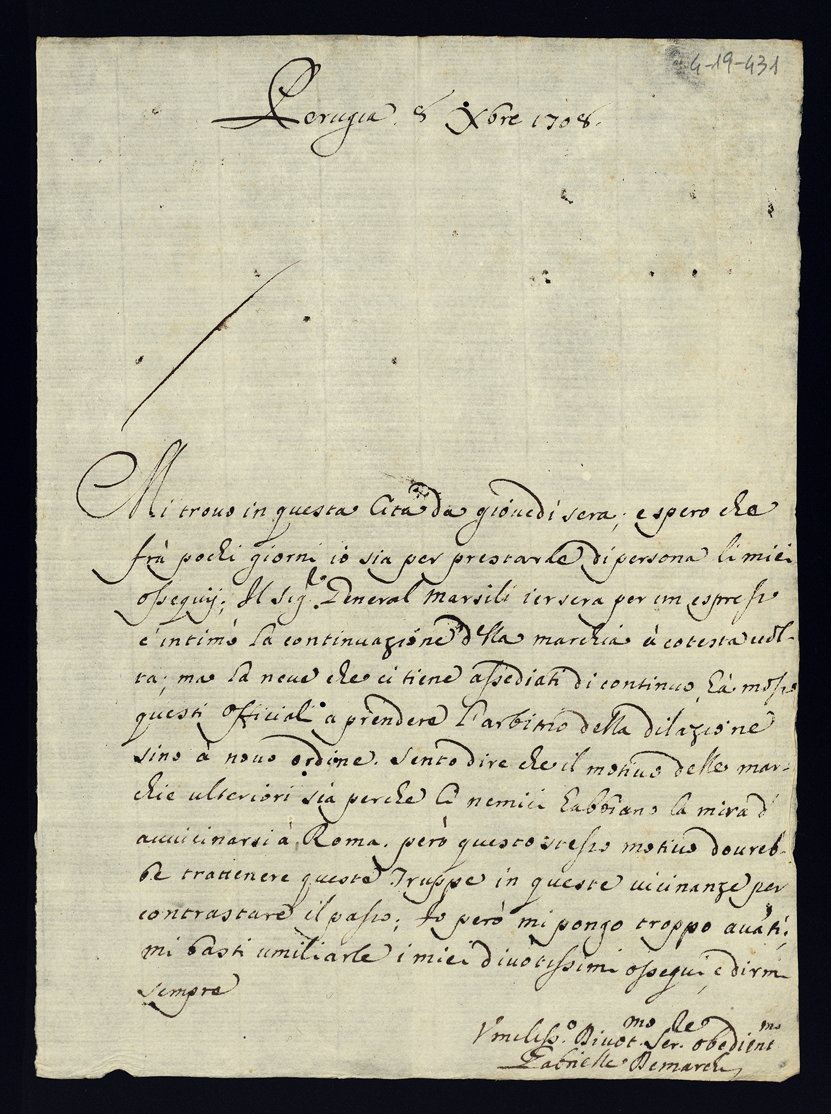 4-19-431
Perugia 8 Xbre 1708.
Mi trovo in questa Cità da giovedì sera; e spero che
frà pochi giorni io sia per prestarle di persona li miei
ossequij; Il Sig.re General Marsili iersera per un espresso
c'intimò la continuazione della marchia à cotesta vol-
ta; ma la neve che ci tiene assediati di continuo, hà mosso
questi Officiali a prendere l'arbitrio della dilazione
sino à novo ordine. Sento dire che il motivo delle mar-
chie ulteriori sia perche li nemici habbiano la mira d'
avvicinarsi à Roma. però questo stesso motivo dovreb-
be tratienere queste Truppe in queste vicinanze per
contrastare il passo; Io però mi pongo troppo avãti;
mi basti umiliarle i miei divotissimi ossequi, e dirmi
sempre
Umiliss.o Divot.mo Ser.re obedient.mo
Gabrielle Demarchi